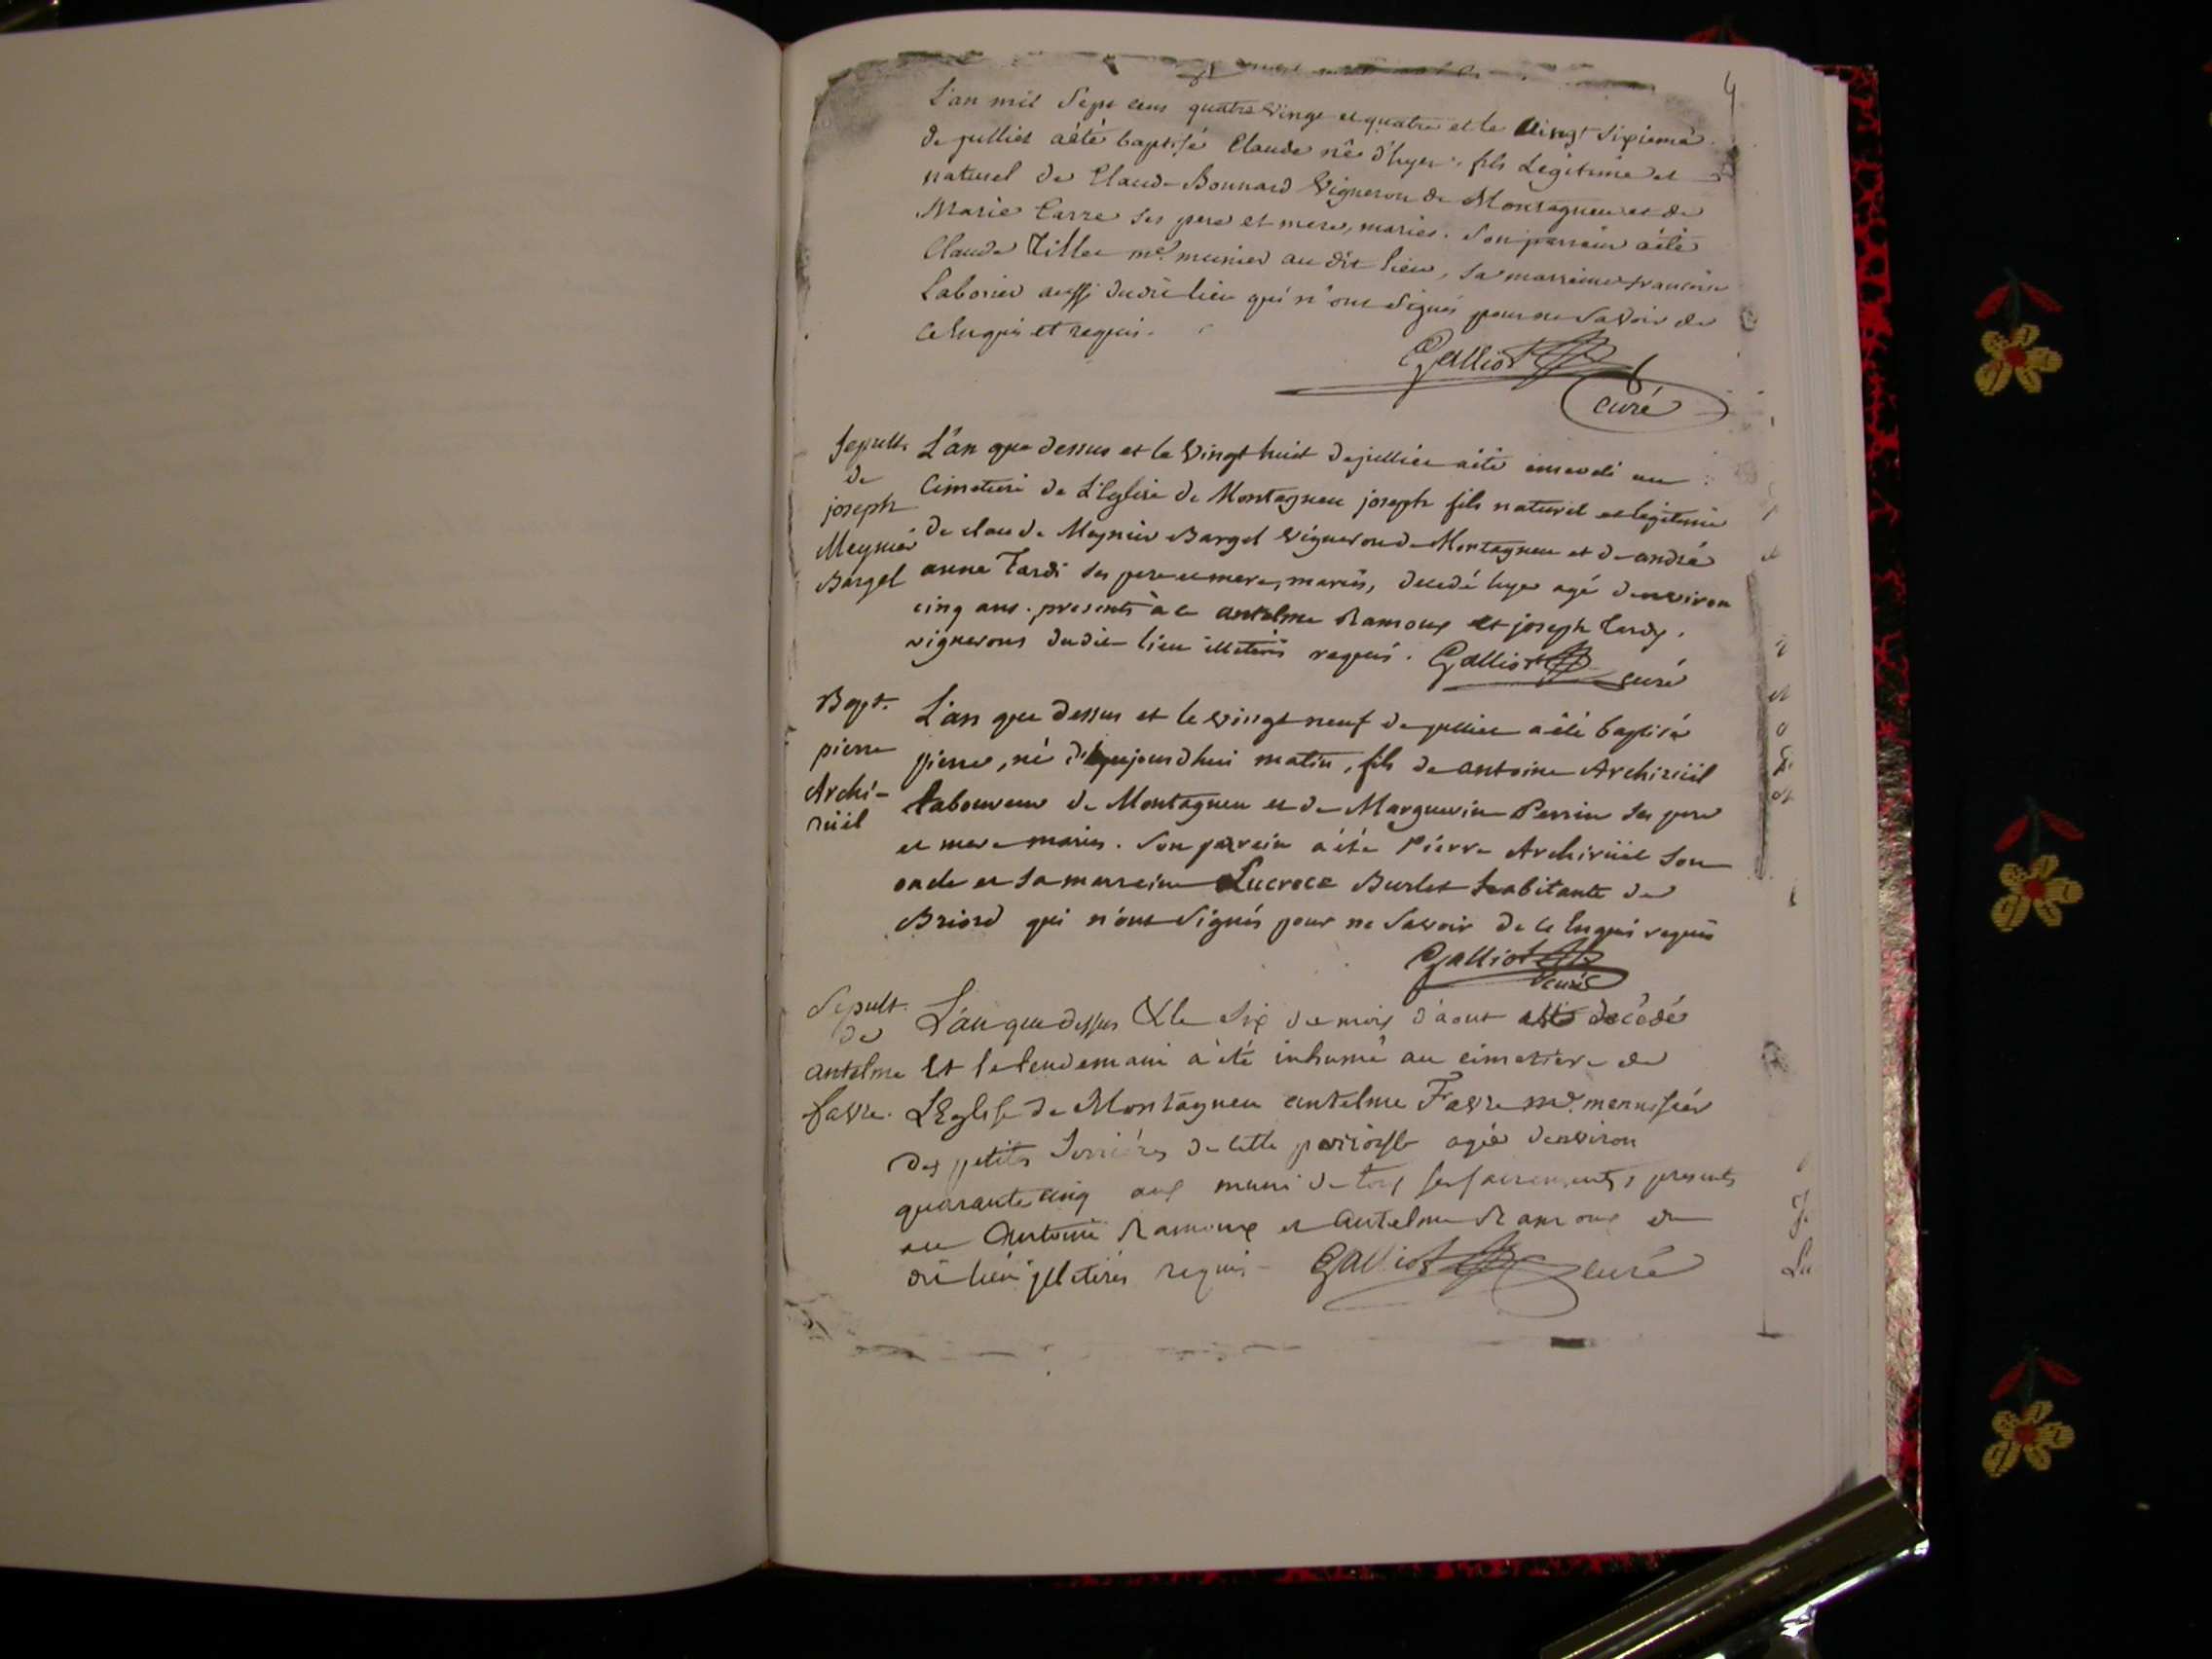 4
L'an mil Sept cens quatre vingt et quatre et le vingt sixieme
de julliet a été baptisé Claude né d'hyer, fils Légitime et
naturel de Claude Bonnard Vigneron de Montagneu et de
Marie Carre ses pere et mere, mariés. Son parrain a été
Claude me. munier au dit lieu, sa marraine francoise
Laborier aussi dudit lieu qui n'ont Signés pour ne Savoir de
ce enquis et requis.
Galliot
curé
Sepult. L'an que dessus et le Vingt huit de julliet a été enseveli au
de Cimetiere de L'Eglise de Montagneu joseph fils naturel et legitime
joseph
Meynier de claude Meynier Bargel vigneron de Montagneu et de andrée
Bargel anne Tardi ses pere et mere, mariés, decedé hyer agé d'environ
cinq ans. presents à ce antelme Ramoux et joseph Tardy.
vignerons dudit lieu illiterés requis. Galliot curé
Bapt. L'an que Dessus et le vingt neuf de julliet a été baptisé
pierre pierre, né d'aujourdhui matin, fils de antoine Archiruïl
Archi- Laboureur de Montagneu et de Marguerite Perrin ses pere
ruïl
et mere mariés. Son parrein a été Pierre Archiruïl Son
oncle et sa marreine Lucrece Burlet habitante de
Briord qui n'ont Signés pour ne Savoir de ce enquis requis
Galliot
curé
Sepult. L'an que dessus & le Six du mois d'aout decedé
de
antelme Et le lendemain a été inhumé au cimetiere de
favre. L'Eglise de Montagneu antelme Favre me. menuisier
des petits Serrières de cette parroisse agée d'environ
quarante cinq ans muni de tous ses sacrements, presents
antoine Ramoux et antelme Ramoux du
dit lieu illeterés requis Galliot curé